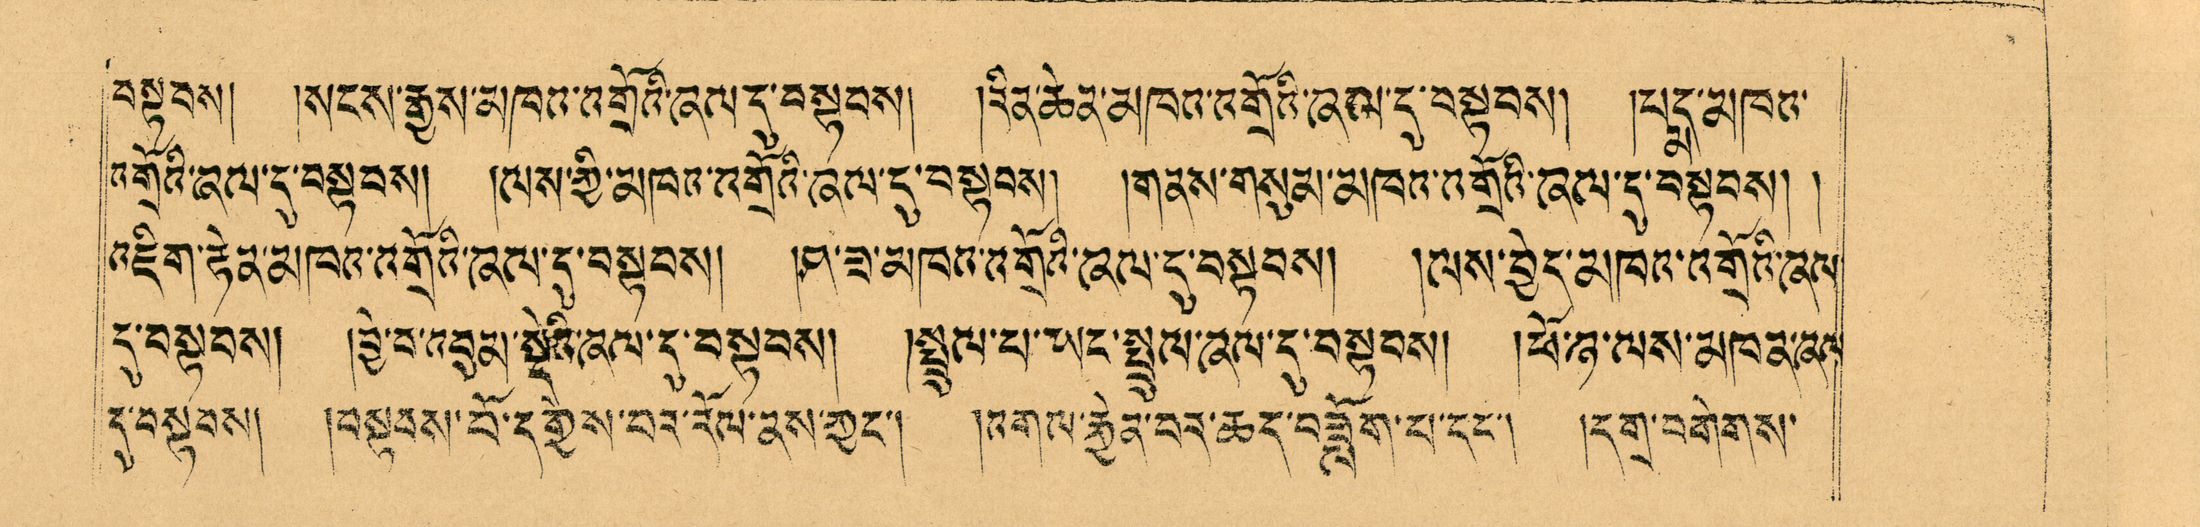 བསྟབས། །སངས་རྒྱས་མཁའ་འགྲོའི་ཞལ་དུ་བསྟབས། །རིན་ཆེན་མཁའ་འགྲོའི་ཞལ་དུ་བསྟབས། །པདྨ་མཁའ་
འགྲོའི་ཞལ་དུ་བསྟབས། །ལས་ཀྱི་མཁའ་འགྲོའི་ཞལ་དུ་བསྟབས། །གནས་གསུམ་མཁའ་འགྲོའི་ཞལ་དུ་བསྟབས། །
འཇིག་རྟེན་མཁའ་འགྲོའི་ཞལ་དུ་བསྟབས། །ཤ་ཟ་མཁའ་འགྲོའི་ཞལ་དུ་བསྟབས། །ལས་བྱེད་མཁའ་འགྲོའི་ཞལ
དུ་བསྟབས། །བྱེ་བ་འབུམ་སྡེའི་ཞལ་དུ་བསྟབས། །སྤྲུལ་པ་ཡང་སྤྲུལ་ཞལ་དུ་བསྟབས། །ཕོ་ཉ་ལས་མཁན་ཞལ
དུ་བསྟབས། །བསྟབས་བོ་དགྱེས་པར་རོལ་ནས་ཀྱང་། །འགལ་རྐྱེན་བར་ཆད་བཟློག་པ་དང་། །དགྲ་བགེགས་